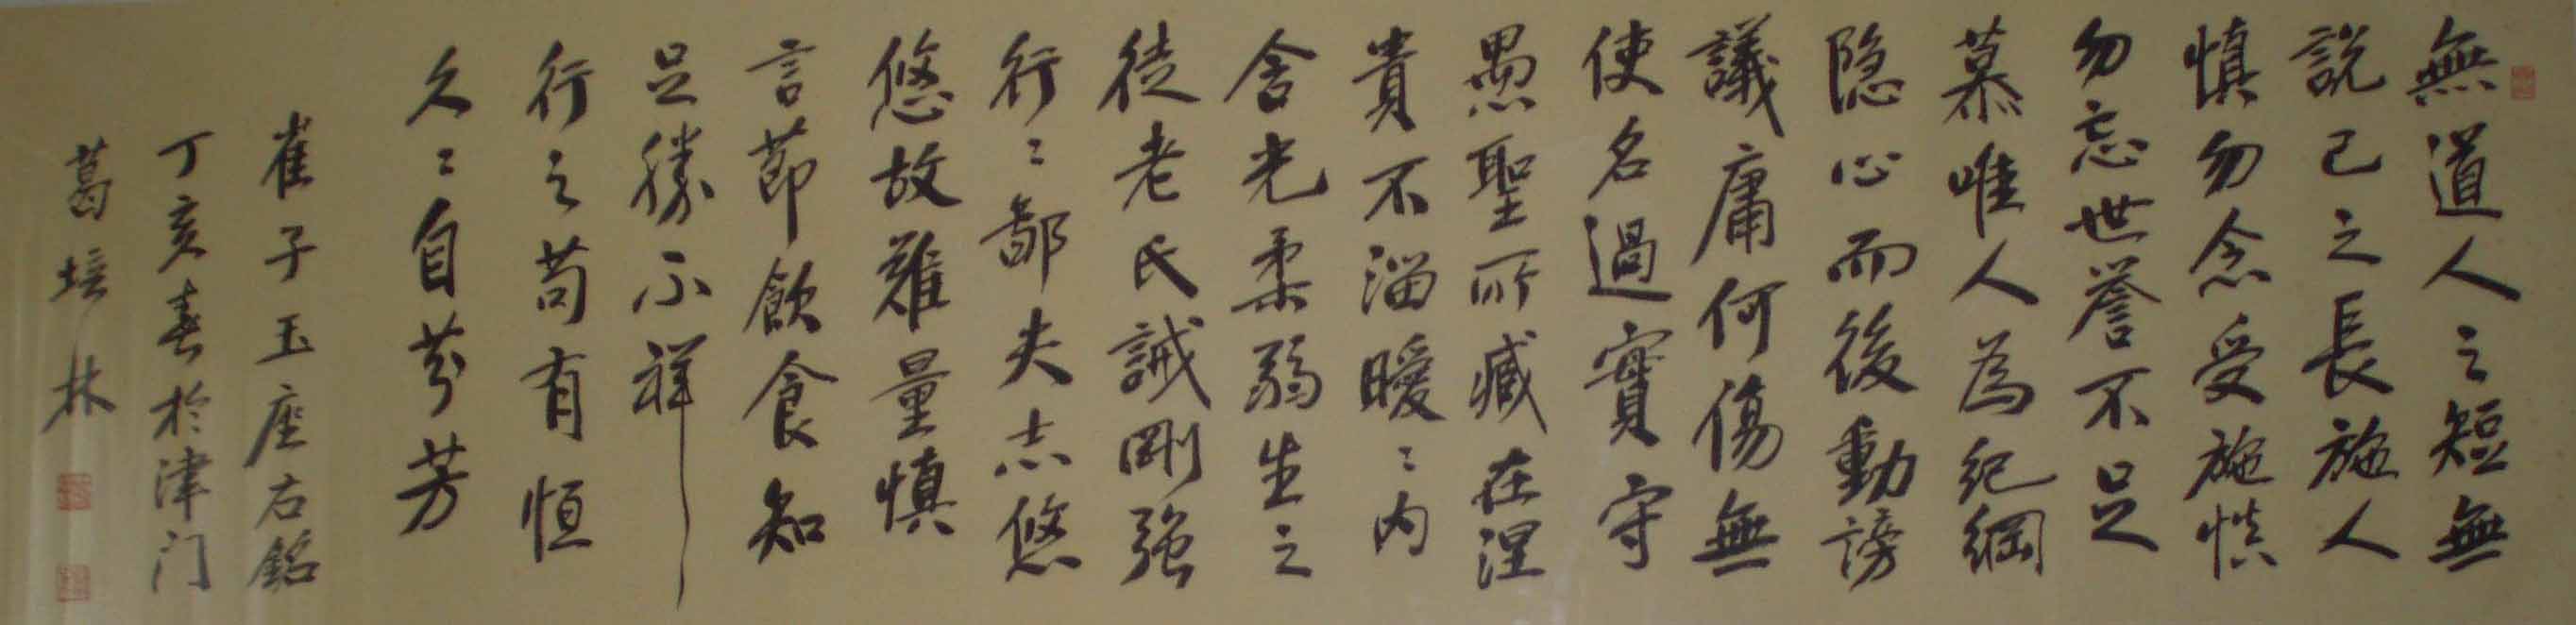 無道人之短無
說己之長施人
慎勿念受施慎
勿忘世誉不足
慕唯人為紀綱
隐心而後動謗
議庸何傷無
使名過實守
愚聖所臧在涅
貴不淄曖〻内
含光柔弱生之
徒老氏誡剛强
行〻鄙夫志悠
悠故難量慎
言節飲食知
足勝不祥
行之苟有恒
久〻自芬芳
崔子玉座右銘
丁亥春於津门
葛培林